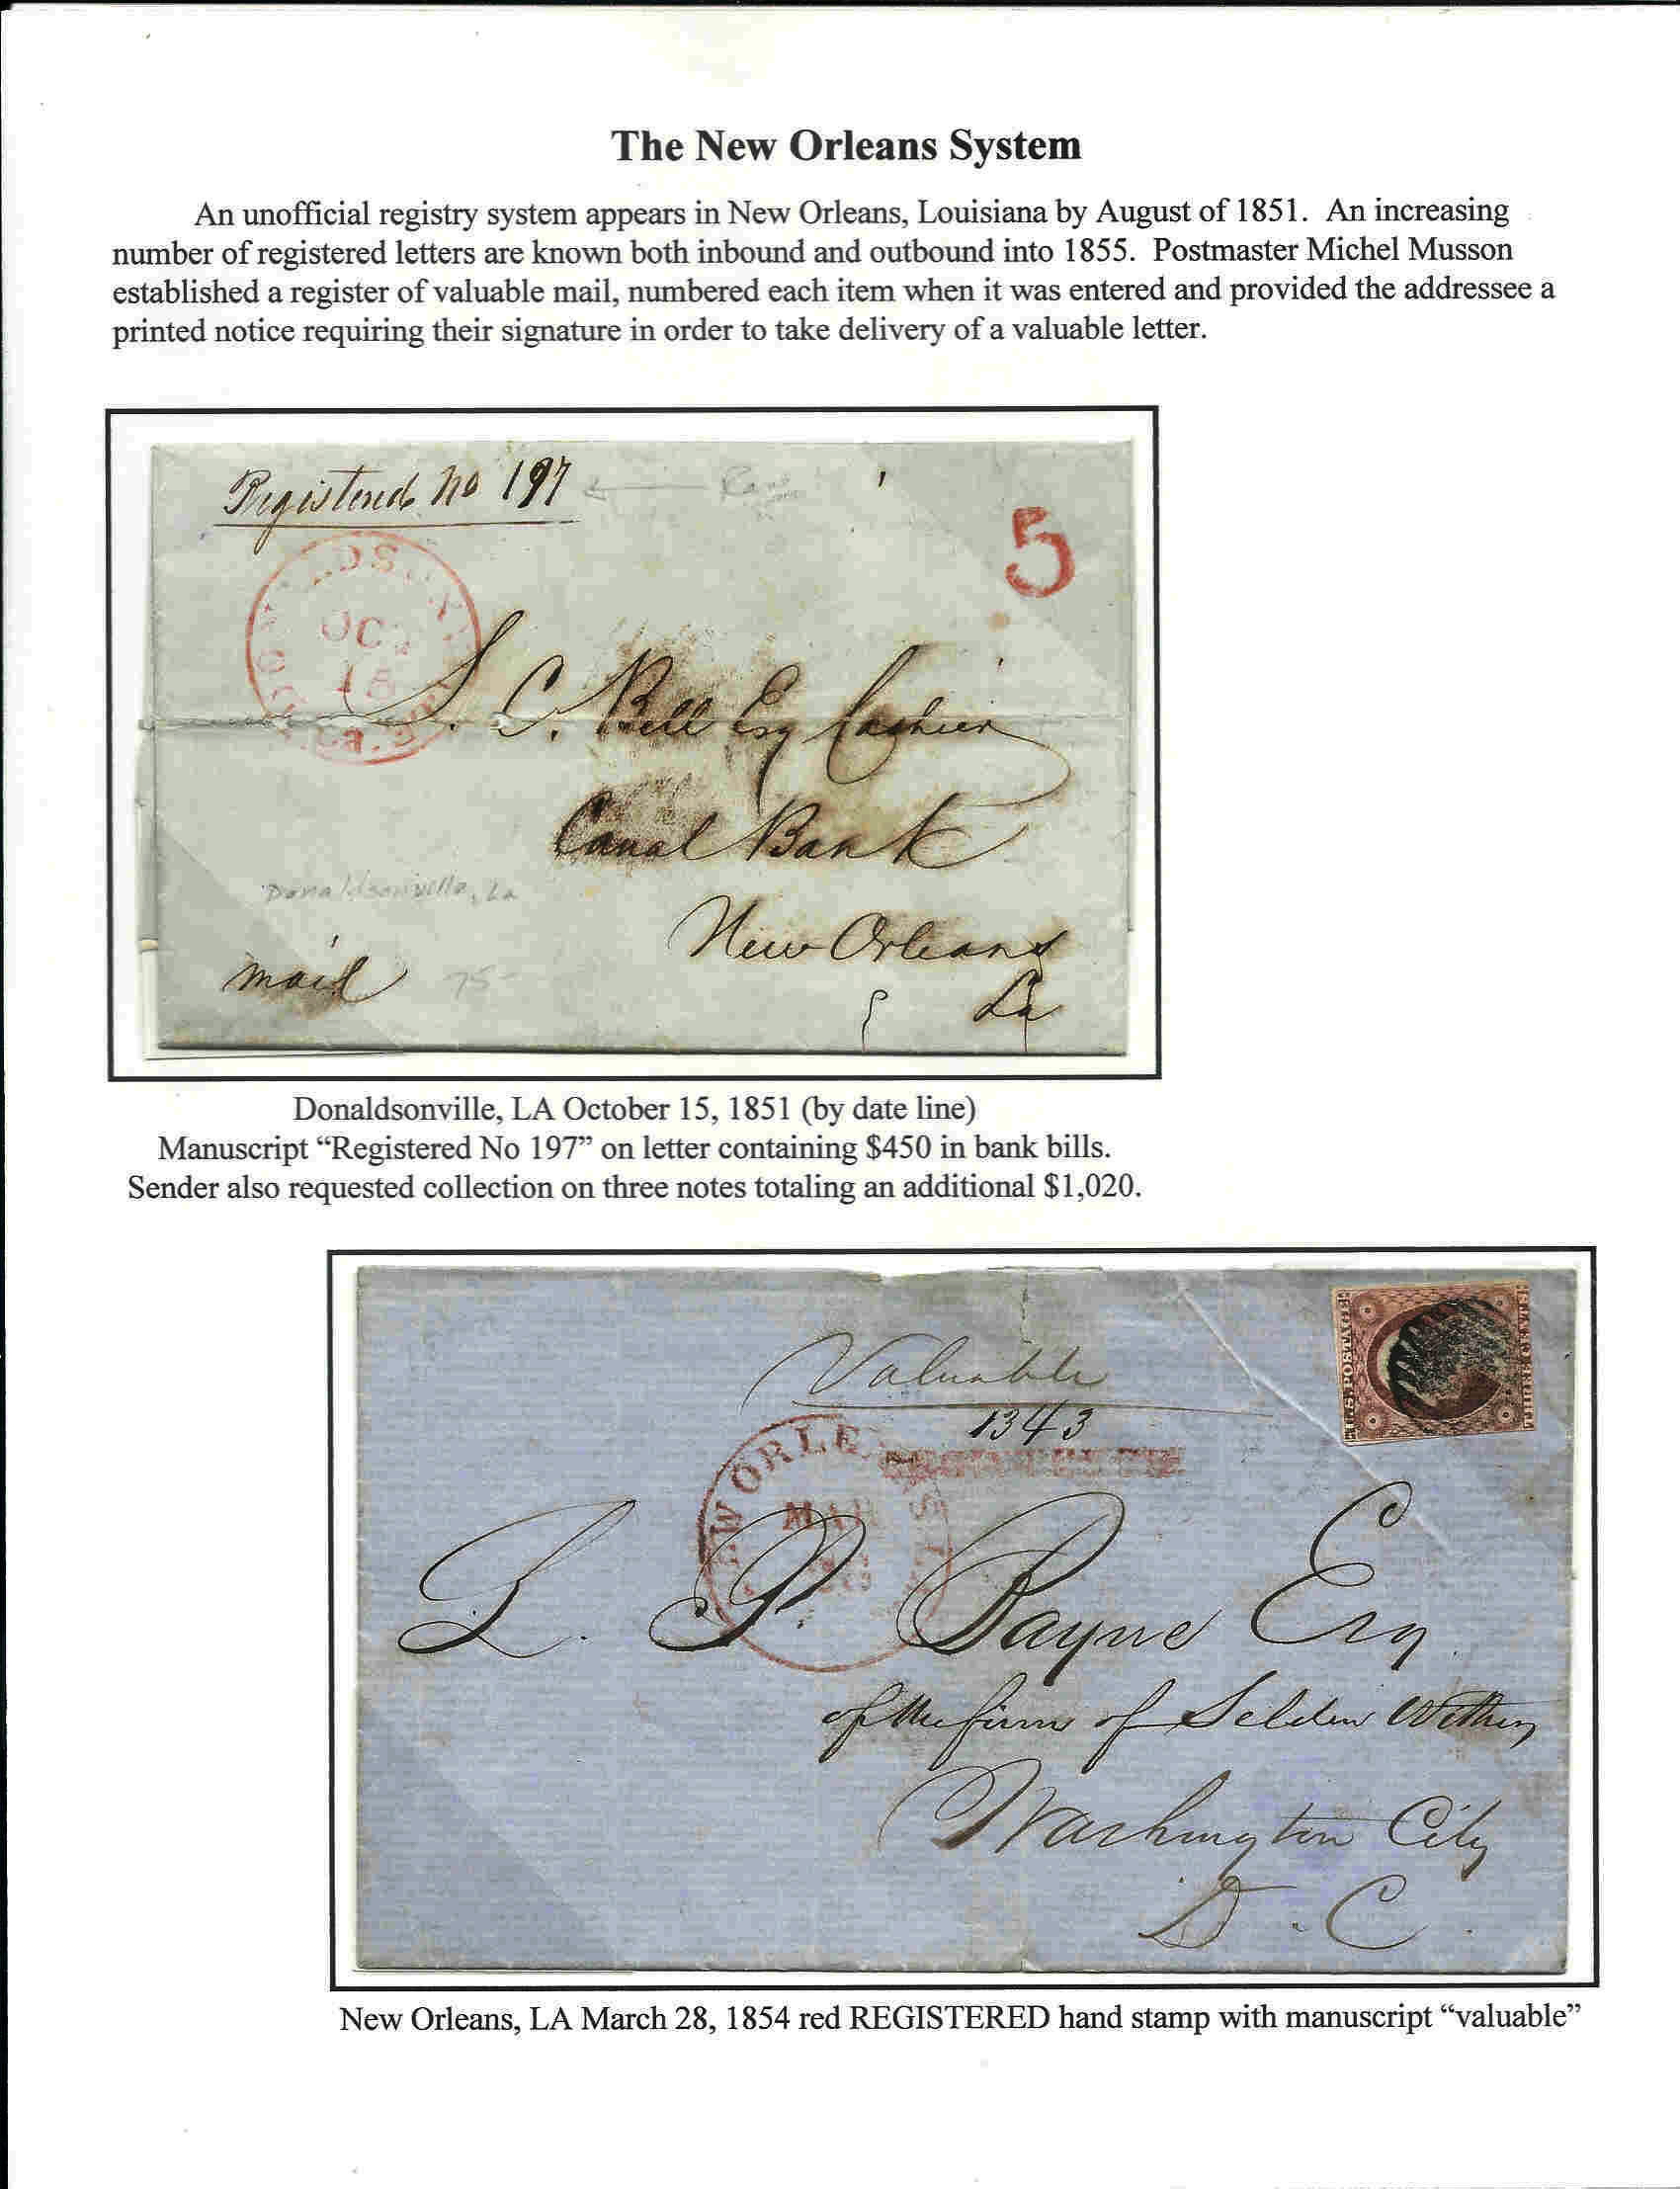 The New Orleans System
An unofficial registry system appears in New Orleans, Louisiana by August of 1851. An increasing
number of registered letters are known both inbound and outbound into 1855. Postmaster Michel Musson
established a register of valuable mail, numbered each item when it was entered and provided the addressee a
printed notice requiring their signature in order to take delivery of a valuable letter.
Registered No 197
5
OCT
15
La.
S. C. Bell Esq Cashier
Canal Bank
Donaldsonville, La
New Orleans
mail 75-
La
Donaldsonville, LA October 15, 1851 (by date line)
Manuscript “Registered No 197” on letter containing $450 in bank bills.
Sender also requested collection on three notes totaling an additional $1,020.
U.S. POSTAGE
Valuable
1343
MAR
28
L. P. Bayne Esq
of the firm of Selden Withers
Washington City
D. C.
New Orleans, LA March 28, 1854 red REGISTERED hand stamp with manuscript “valuable”